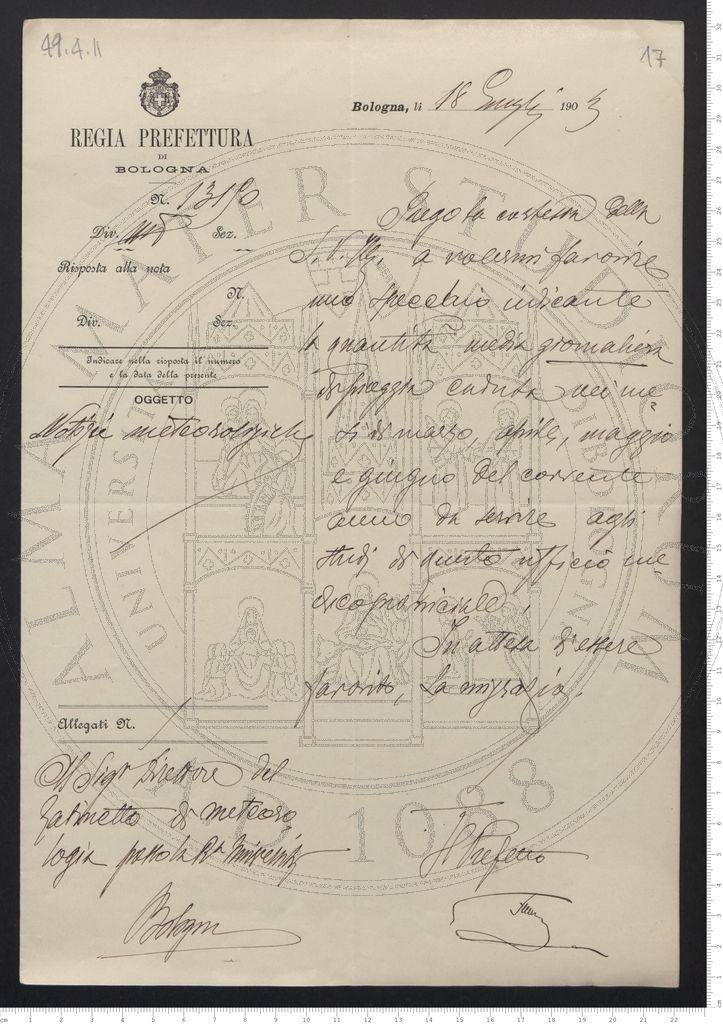 49.4.11
17
Bologna, li 18 Luglio 1903
REGIA PREFETTURA
DI
BOLOGNA
N. 13190
Div. Sez.
Risposta alla nota
N.
Div. Sez.
Indicare nella risposta il numero
e la data della presente
OGGETTO
Notizie meteorologiche
Prego la cortesia della
S. V. Ill. a volermi favorire
uno specchio indicante
la quantità media giornaliera
di pioggia caduta nei me=
si di marzo, aprile, maggio
e giugno del corrente
anno da servire agli
studi di questo ufficio me
dico provinciale.
In attesa d'essere
favorito, La ringrazio.
Allegati N.
Al Sigr Direttore del
Gabinetto di meteoro
logia presso la Ra Università
Bologna
Il Prefetto
ALMA MATER STUDIORUM
A.D. 1088